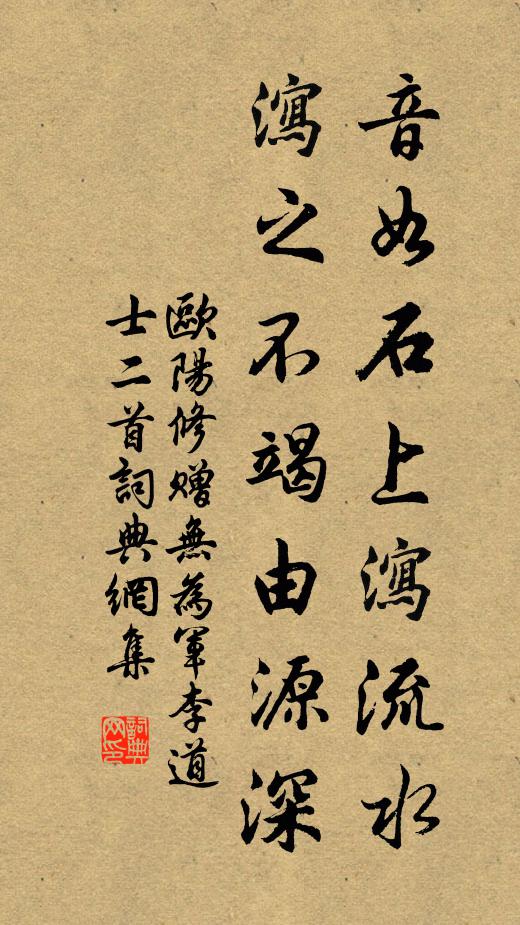 音如石上瀉流水
瀉之不竭由源深
歐陽修贈無為軍李道
士二首詞典網集
詞典
网印